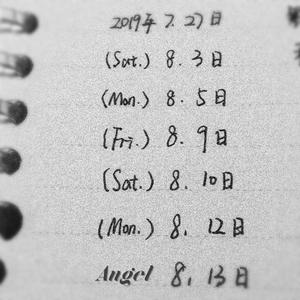 2019年 7.27日
(Sat.) 8.3日
(Mon.) 8.5日
(Fri.) 8.9日
(Sat.) 8.10日
(Mon.) 8.12日
Angel 8.13日